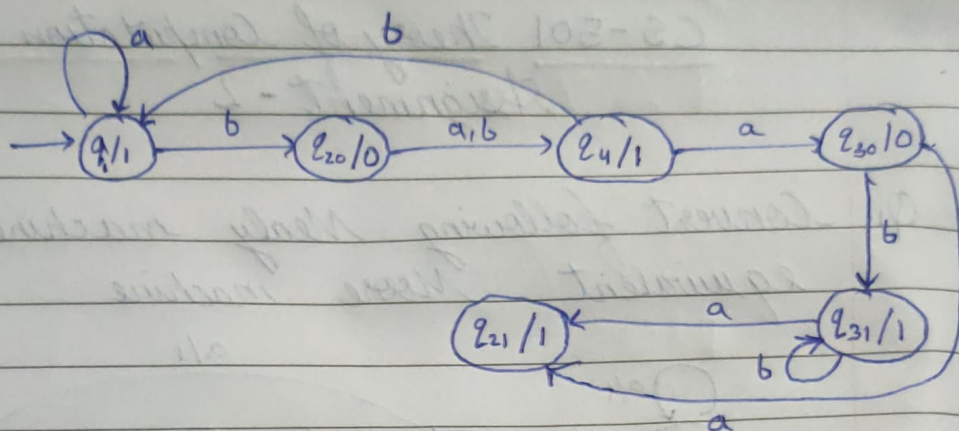 a b
q₁/1 b q₂₀/0 a,b q₄/1 a q₃₀/0
b
q₂₁/1 a q₃₁/1
b
a